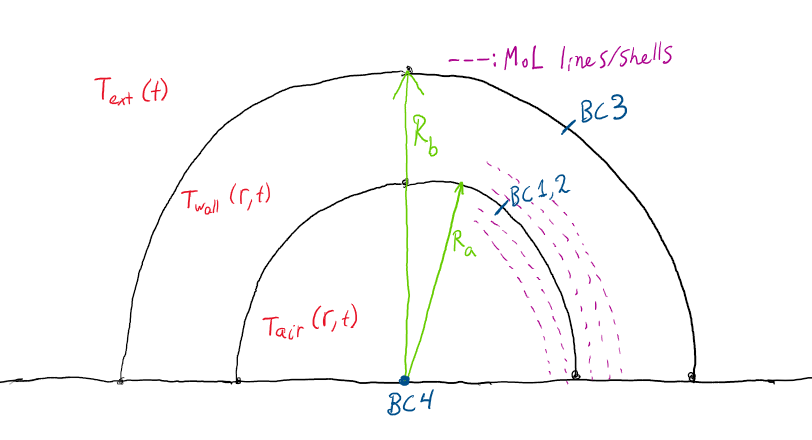 ---: MoL lines/shells
T_ext (t)
BC3
R_b
T_wall (r,t)
BC1,2
R_a
T_air (r,t)
BC4